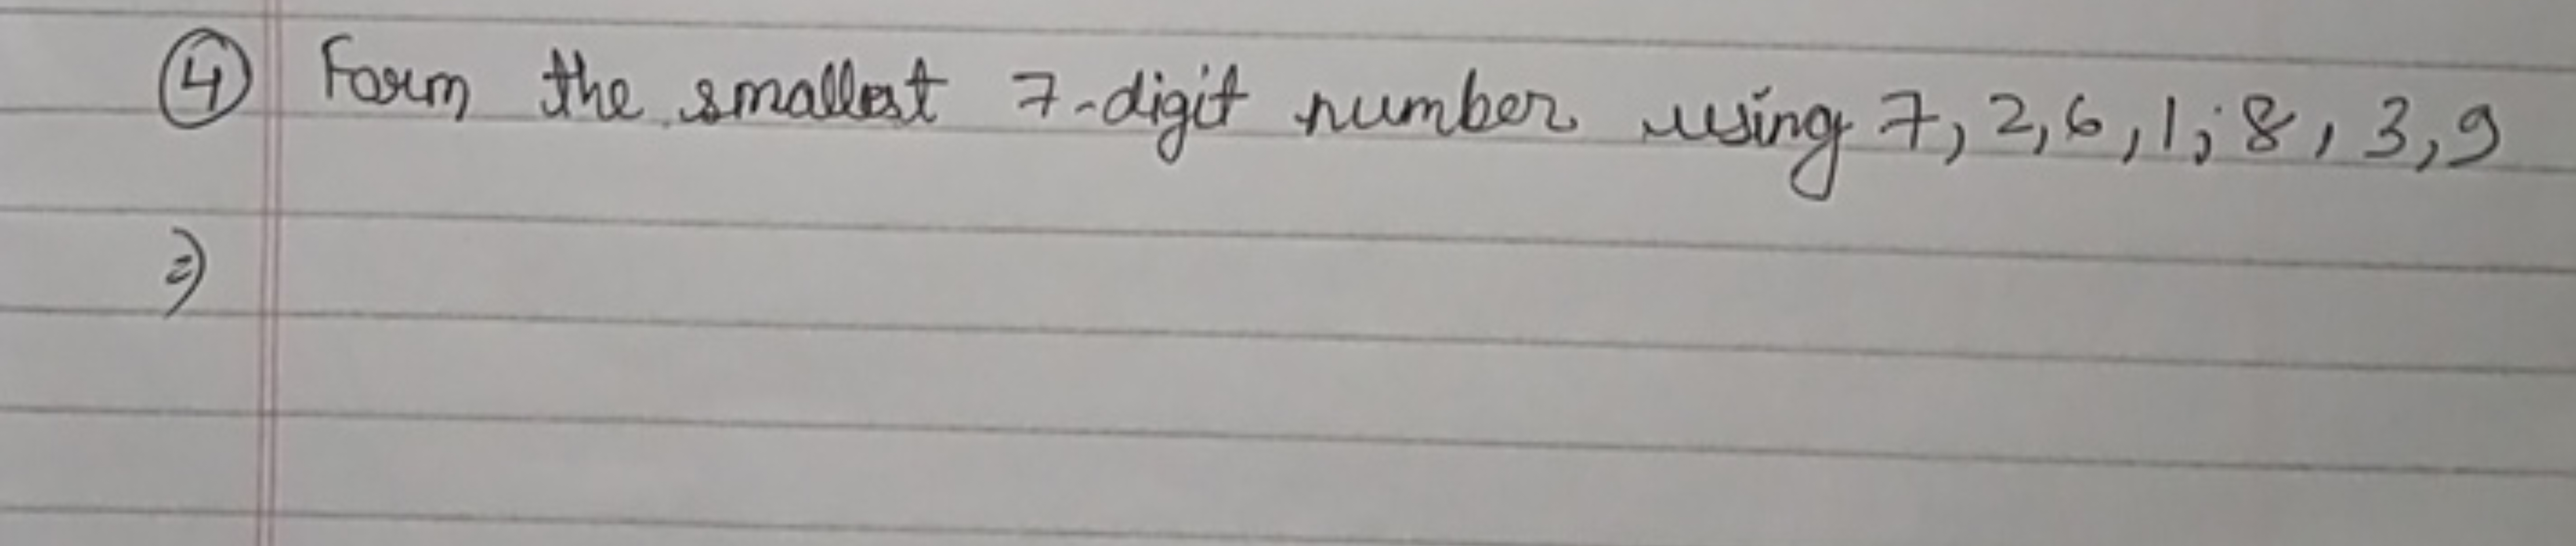 ④ Form the smallest 7-digit number using 7, 2, 6, 1, 8, 3, 9
⇒